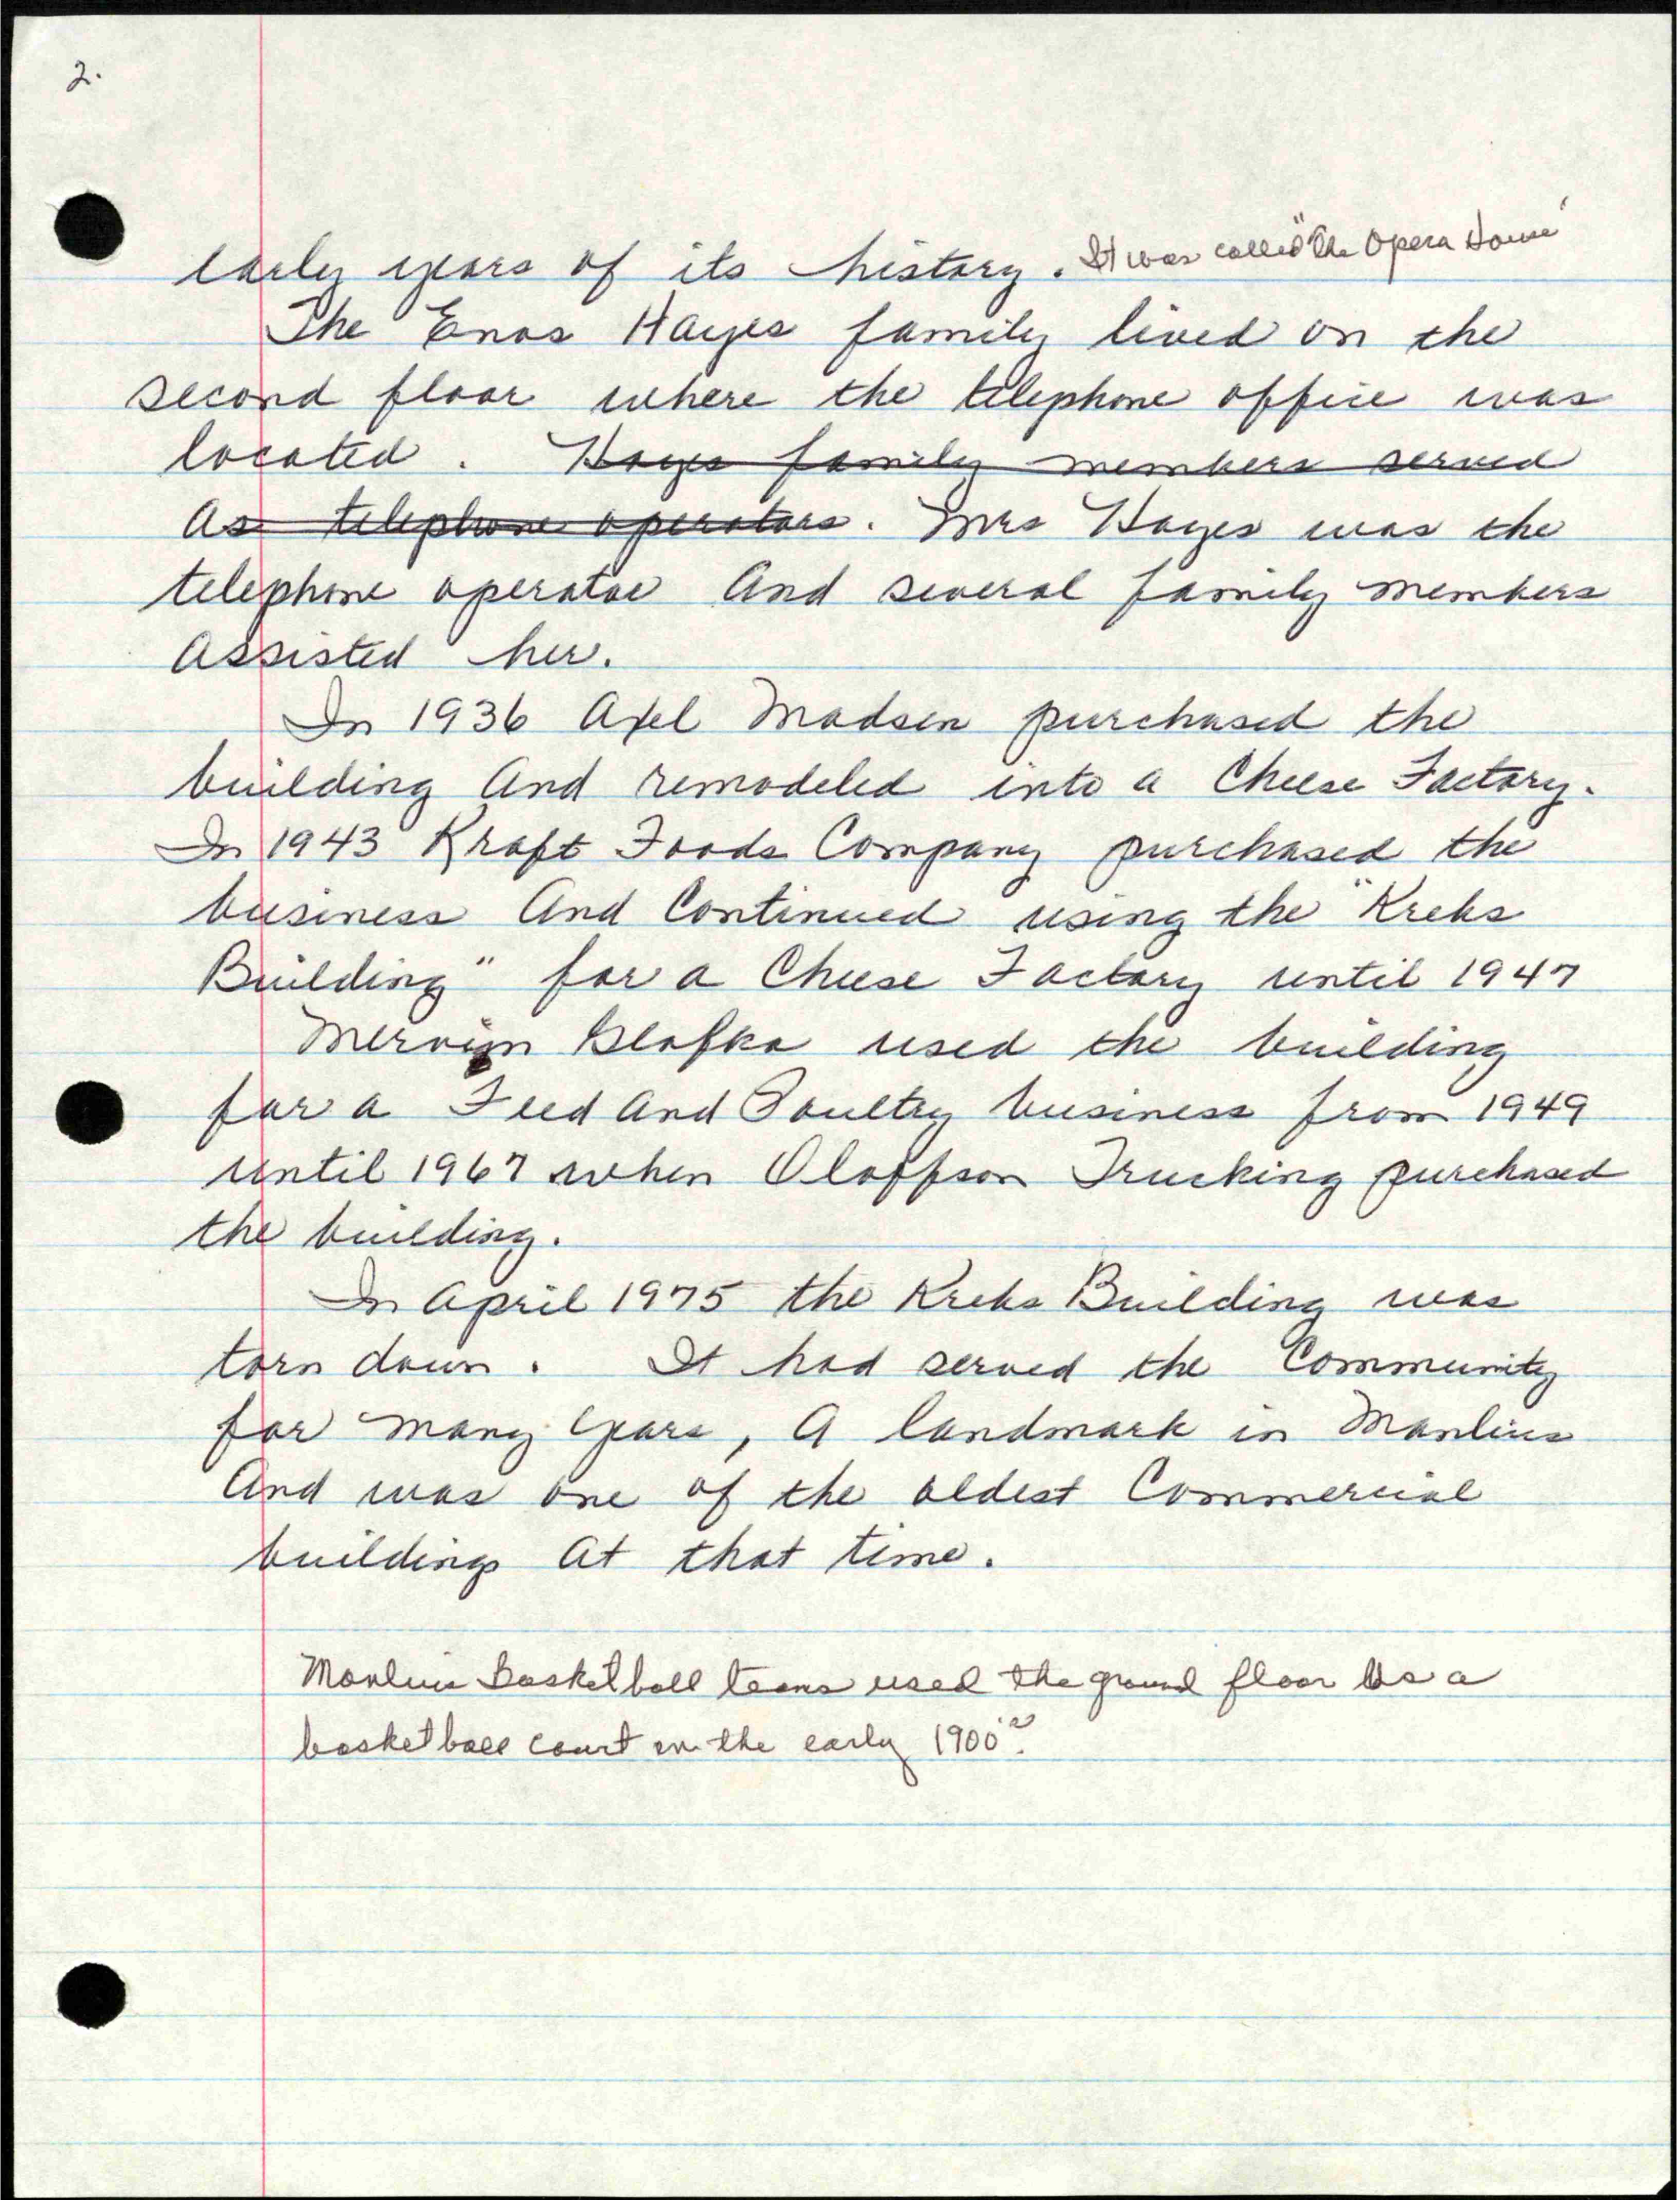 2.
early years of its history. It was called "The Opera House"
The Enos Hayes family lived on the
second floor where the telephone office was
located. Hayes family members served
as telephone operators. Mrs Hayes was the
telephone operator And several family members
Assisted her.
In 1936 Axel Madsen purchased the
building And remodeled into a Cheese Factory.
In 1943 Kraft Foods Company purchased the
business And Continued using the "Krebs
Building" for a Cheese Factory until 1947
Mervyn Blafka used the building
for a Feed And Poultry business from 1949
until 1967 when Oloffson Trucking purchased
the building.
In April 1975 the Krebs Building was
torn down. It had served the Community
for many years, A landmark in Manlius
And was one of the oldest Commercial
buildings At that time.
Manlius Basketball teams used the ground floor as a
basketball court in the early 1900's.